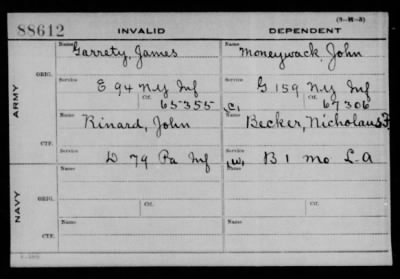 (3-H-3)
88612 INVALID DEPENDENT
Name Garrety, James Name Moneywack, John
ORIG.
Service E 94 N.Y Inf Service G 159 N.Y Inf
Ctf. 65355 C. Ctf. 67306
ARMY
Name Rinard, John Name Becker, Nicholaus F
CTF.
Service D 79 Pa Inf (W) Service B 1 Mo L.A
Name Name
ORIG.
Service Ctf. Service Ctf.
NAVY
Name Name
CTF.